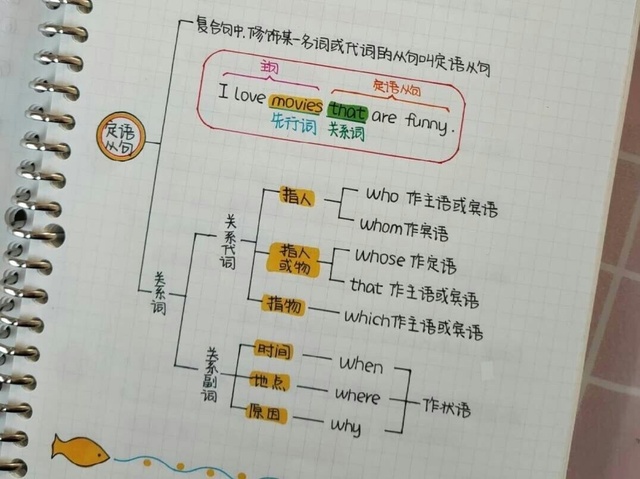 复合句中,修饰某一名词或代词的从句叫定语从句
主句 定语从句
I love movies that are funny.
先行词 关系词
定语
从句
关系词
关系代词
指人
who 作主语或宾语
whom作宾语
指人
或物
whose 作定语
that 作主语或宾语
指物
which作主语或宾语
关系副词
时间
when
地点
where
原因
why
作状语